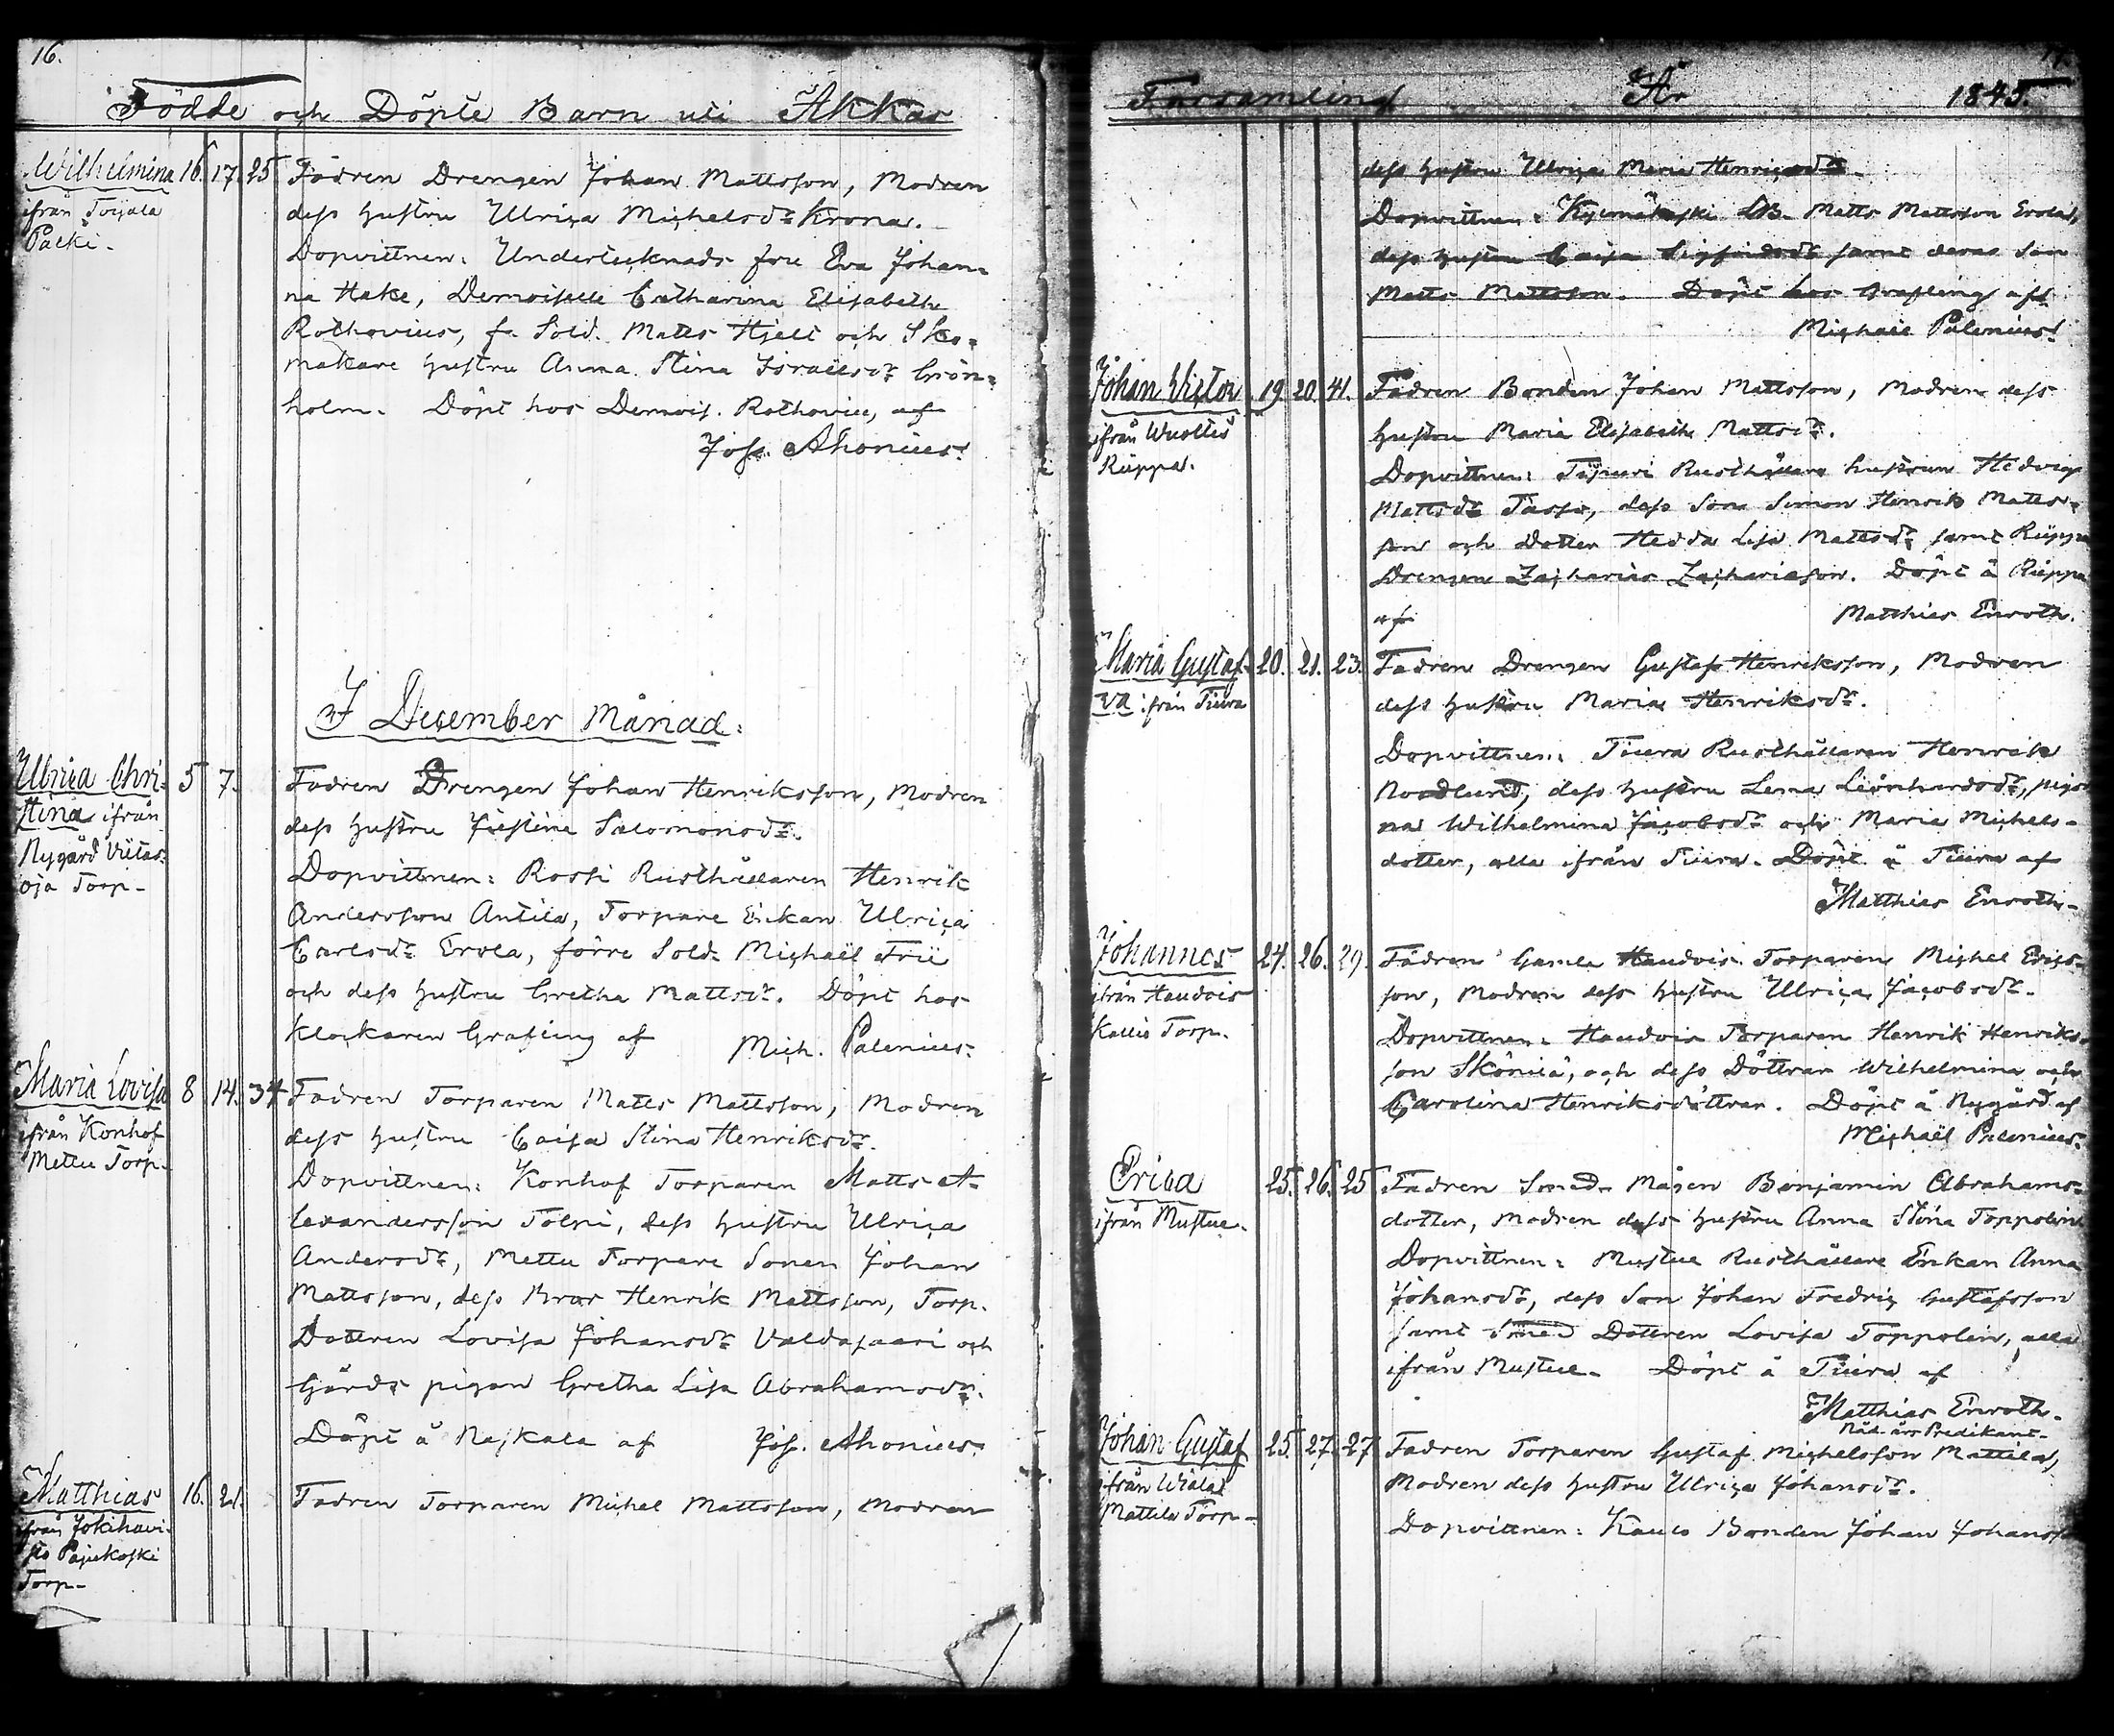 16.
Födde och Döpte Barn uti Akkas
Wilhelmina 16. 17. 25 Fadren Drengen Johan Mattsson, Modren
ifrån Torjala dess hustru Ulrica Michelsdr Krona.
Palki.
Dopvittnen: Undertecknads fru Eva Johan-
na Hake, Demoiselle Catharina Elisabeth
Rothovius, f. Sold. Matts Hjelt och Sko-
makare hustru Anna Stina Israelsdr Grön-
holm. Döpt hos Demois. Rothovius, af
Jos. Ahonius.
I December Månad:
Ulrica Chri- 5 7. Fadren Drengen Johan Henriksson, Modren
stina ifrån dess hustru Justina Salomonsdr.
Nygård
oja Torp-
Dopvittnen: Rossi Rusthållaren Henrik
Andersson Antila, Torpare Enkan Ulrica
Carlsdr Erola, förre Sold. Michaël Frii
och dess hustru Gretha Mattsdr. Döpt hos
Klockaren Grafling af Mich. Palenius.
Maria Lovisa 8 14. 34 Fadren Torparen Matts Mattsson, Modren
ifrån Konhof dess hustru Caisa Stina Henriksdr.
Mettu Torp.
Dopvittnen: Konhof Torparen Matts A-
lexandersson Tolpi, dess hustru Ulrica
Andersdr, Mettu Torpare Sonen Johan
Mattsson, dess Bror Henrik Mattsson, Torp.
Dottren Lovisa Johansdr Valdasaari och
Gårds pigan Gretha Lisa Abrahamsdr.
Döpt å Naskala af Jos. Ahonius.
Matthias 16. 21. Fadren Torparen Michel Mattsson, Modren
ifrån Jokihavi-
sto Pajukoski
Torp-
Forsamling År 1845.
dess hustru Ulrica Maria Henricsdr.
Dopvittnen: LB. Matts Mattsson Erola,
dess hustru Caisa Sigfridsdr samt deras Son
Matts Mattsson. Döpt hos Grafling af
Michaël Palenius.
Johan Victor 19. 20. 41. Fadren Bonden Johan Mattsson, Modren dess
ifrån Wuoltis hustru Maria Elisabeth Mattsdr.
Rüppa.
Dopvittnen: Rusthållare hustrun Hedvig
Mattsdr dess Son Simon Henrik Matts-
son och Dotter Hedda Lisa Mattsdr samt Rüppa
Drengen Zacharias Zachariasson. Döpt å Rüppa
af Matthias Enroth.
Maria Gustaf- 20. 21. 23. Fadren Drengen Gustaf Henriksson, Modren
va ifrån Tiura dess hustru Maria Henriksdr.
Dopvittnen: Tiura Rusthållaren Henrik
Nordlund, dess hustru Lena Leonhardsdr, pigor
na Wilhelmina Jacobsdr och Maria Michels-
dotter, alla ifrån Tiura. Döpt å Tiura af
Matthias Enroth.
Johannes 24. 26. 29. Fadren Gamla Haudois Torparen Michel Erics-
ifrån Haudois son, Modren dess hustru Ulrica Jacobsdr.
Kallis Torp.
Dopvittnen: Haudois Torparen Henrik Henriks-
son Skönilä, och dess Döttrar Wilhelmina och
Carolina Henriksdöttrar. Döpt å Nygård af
Michaël Palenius.
Erica 25. 26. 25 Fadren Smed Mågen Benjamin Abrahams-
ifrån Mustue. dotter, Modren dess hustru Anna Stina Toppolin
Dopvittnen: Mustue Rusthållare Enkan Anna
Johansdr, dess Son Johan Fredric Gustafsson
samt Smed Dottren Lovisa Toppolin, alla
ifrån Mustue. Döpt å Tiura af
Matthias Enroth.
Nåd. års Predikant.
Johan Gustaf 25. 27. 27 Fadren Torparen Gustaf Michelsson Mattila,
ifrån Wiala Modren dess hustru Ulrica Johansdr.
Mattila Torp-
Dopvittnen: Bonden Johan Johansson